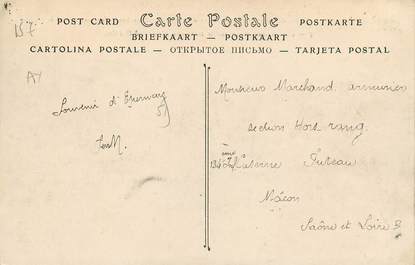 137
AY
POST CARD Carte Postale POSTKARTE
BRIEFKAART — POSTKAART
CARTOLINA POSTALE — ОТКРЫТОЕ ПИСЬМО — TARJETA POSTAL
Souvenir d'Epernay
51
Monsieur Marchand armurier
section Hors rang
134 eme Caserne
Mâcon
Saône et Loire